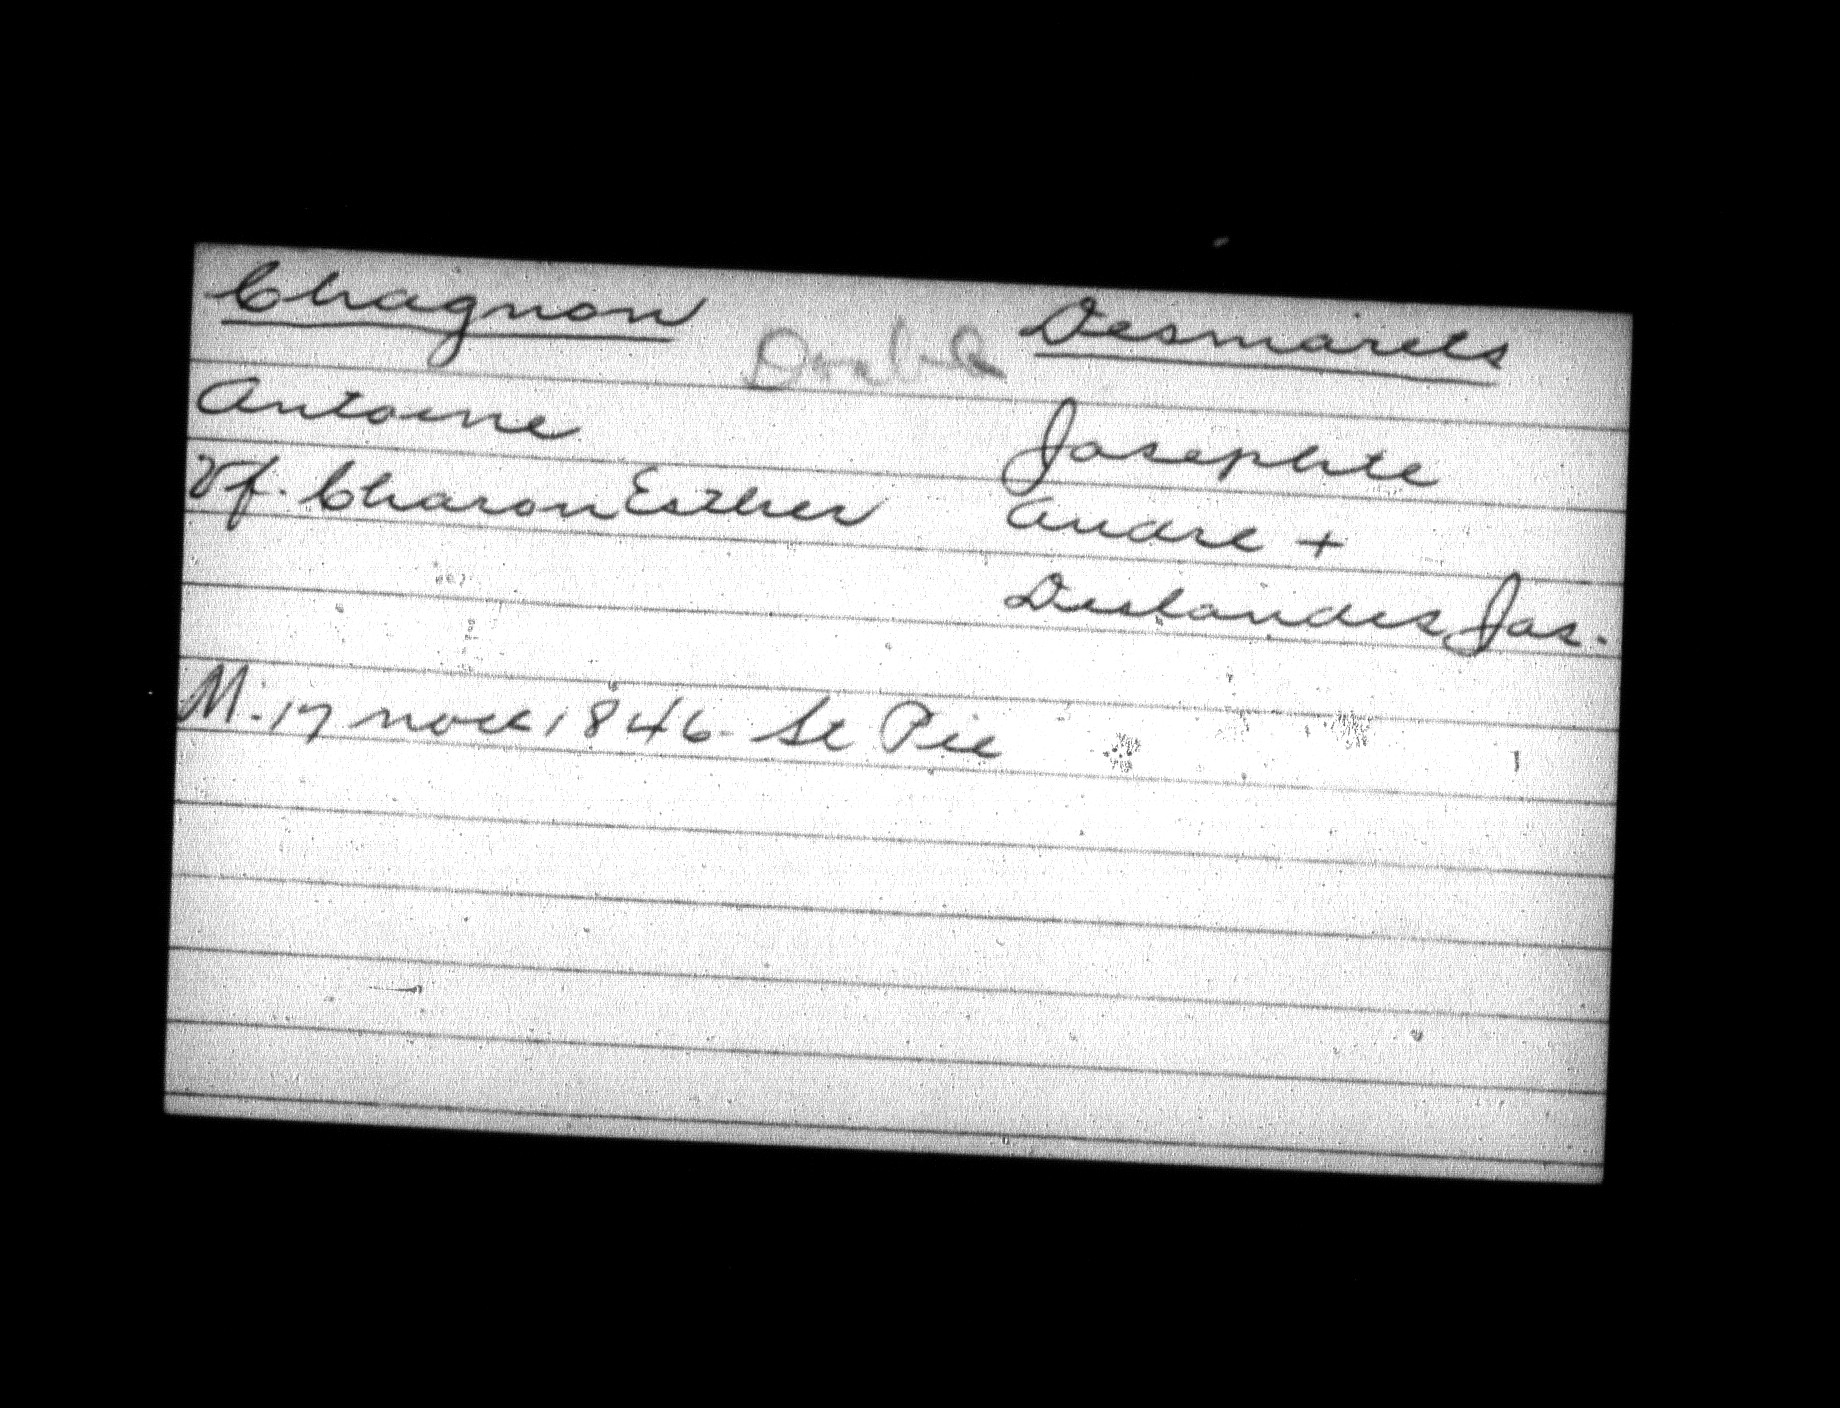 Chagnon Double Desmarets
Antoine Josephte
Vf. Charon Esther Andre +
Deslandes Jos.
M. 17 nov 1846. St Pie